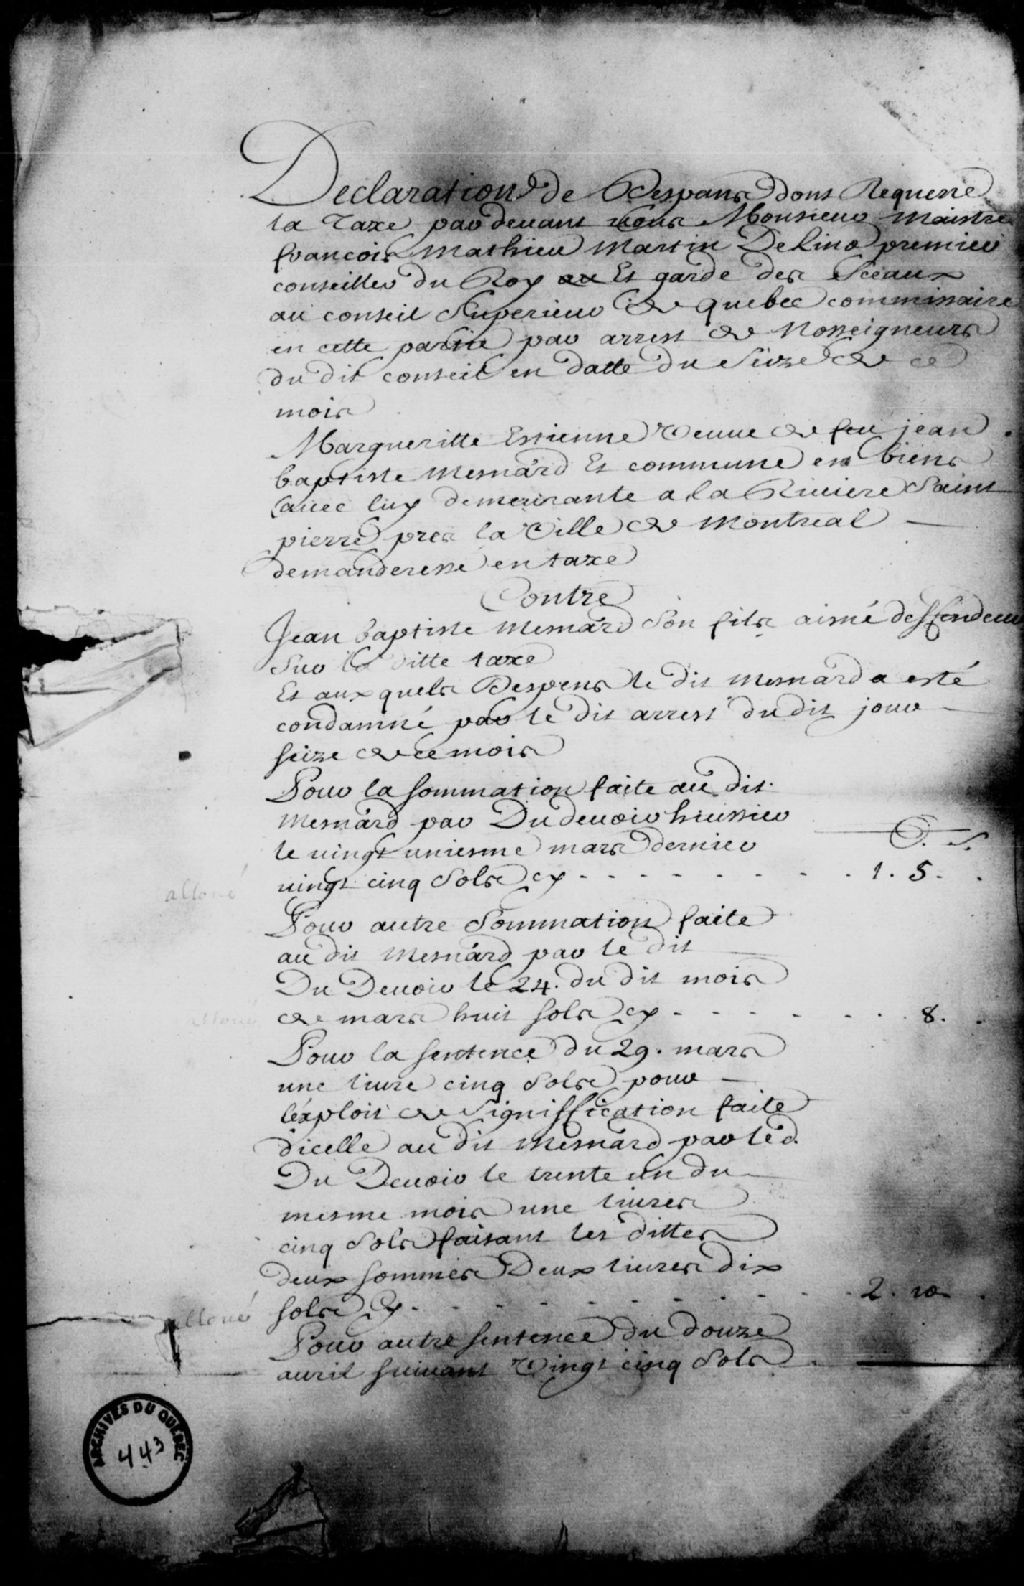 Declaration de Despans dont Requerre
la Taxe par devant vous Monsieur Maistre
francois Mathieu Martin De Lino premier
conseiller du Roy Et garde des Sceaux
au conseil Superieur de quebec commissaire
en cette partie par arrest de Nosseigneurs
du dit conseil en datte du Sèize de ce
mois
Margueritte Estienne veuve de feu jean
baptiste Mesnard Et commune en biens
avec luy demeurante a la Riviere Saint
pierre pres la Ville de Montreal
demanderesse en taxe
Contre
Jean baptiste Mesnard Son fils aisné deffendeur
Sur la ditte taxe
Et aux quels Despens le dit Mesnard a esté
condamné par le dit arrest du dit jour
seize de ce mois
Pour la sommation faite au dit
Mesnard par Du devoir huissier
le vingt uniesme mars dernier
vingt cinq Sols cy 1. 5.
alloué
Pour autre Sommation faite
au dit Mesnard par le dit
Du Devoir le 24. du dit mois
de mars huit sols cy 8.
alloué
Pour la sentence du 29. mars
une livre cinq Sols pour
l'exploit de Signiffication faite
dicelle au dit Mesnard par le d.
Du Devoir le trente un du
mesme mois une livres
cinq Sols faisant les dittes
deux sommes Deux livres dix
sols cy 2. 10
alloué
Pour autre sentence du douze
avril suivant Vingt cinq Sols
ARCHIVES DU QUÉBEC
443